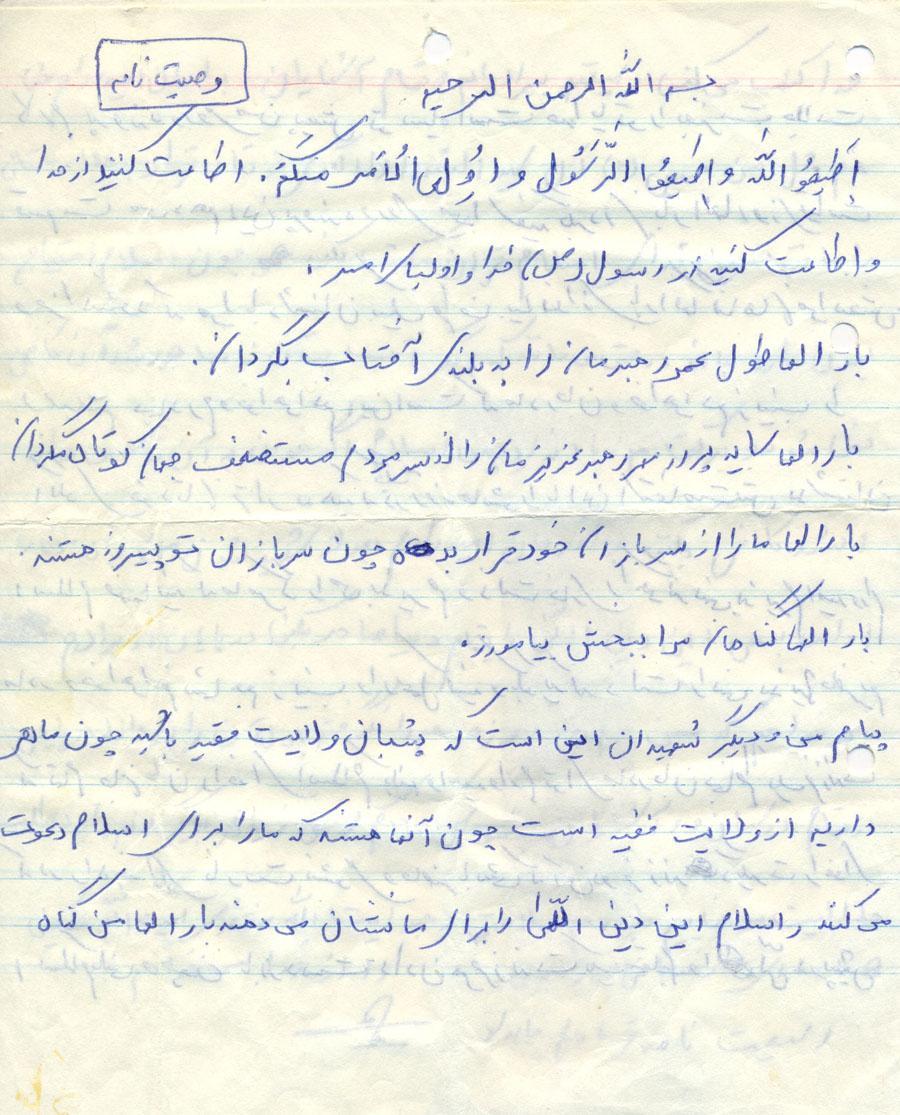 وصیت نامه
بسم الله الرحمن الرحیم
اَطیعُو اللهَ وَ اِطیعُوا الرَّسُول و اوُلِی الاَمر مِنکُم. اطاعت کنید از خدا
و اطاعت کنید از رسول (ص) خدا و اولیاء امر.
بار الها طول عمر رهبرمان را به بلندی آفتاب بگردان.
بار الها سایه پر از مهر رهبر عزیزمان را از سر مردم مستضعف جهان کوتاه مگردان
بار الها ما را از سربازان خود قرار بده چون سربازان تو پیروز هستند.
بار الها گناهان مرا ببخش بیامورز.
پیام من و دیگر شهیدان این است که پشبان ولایت فقیه باشید چون ما هر
داریم از ولایت فقیه است چون آنها هستند که ما را برای اسلام دعوت
می کند و اسلام این دین الهی را برای ما نشان می دهند بار الها من گناه